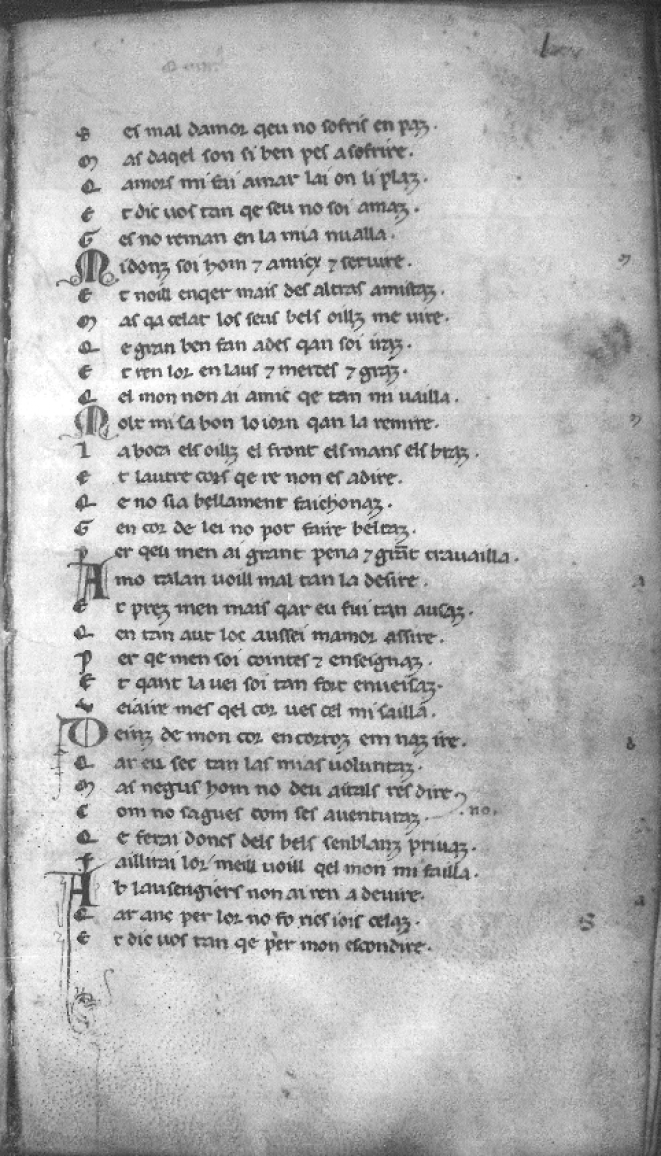 S es mal damor qeu no sofris en paz.
M as daqel son si ben pes a sofrire.
Q amors mi fai amar lai on li plaz.
E t dic uos tan qe seu no soi amaz.
G es no reman en la mia nualla.
M idonz soi hom ⁊ amicx ⁊ seruire.
E t noill enqer mais des altras amistaz.
M as qa celat los seus bels oillz me uire.
Q e gran ben fan ades qan soi iraz.
E t ren lor en laus ⁊ merces ⁊ graz.
Q el mon non ai amic qe tan mi uailla.
M olt mi sa bon lo iorn qan la remire.
L a boca els oillz el front els mans els braz.
E t lautre cors qe re non es a dire.
Q e no sia bellament faichonaz.
G en cor de lei no pot faire beltaz.
P er qeu men ai grant pena ⁊ grāt trauailla.
A mo talan uoill mal tan la desire.
E t prez men mais qar eu fui tan ausaz.
Q en tan aut loc aussei mamor assire.
P er qe men soi cointes ⁊ enseignaz.
E t qant la uei soi tan fort enueisaz.
V eiaire mes qel cor ues cel mi sailla.
D einz de mon cor en corroz em naz ire.
Q ar eu sec tan las mias uoluntaz.
M as negus hom no deu aitals res dire
C om no sagues com ses auenturaz. no.
Q e ferai doncs dels bels senblanz priuaz.
F aillirai lor meill uoill qel mon mi failla.
A b lausengiers non ai ren a deuire.
Q ar anc per lor no fo ries iois celaz.
E t dic uos tan qe per mon escondire.